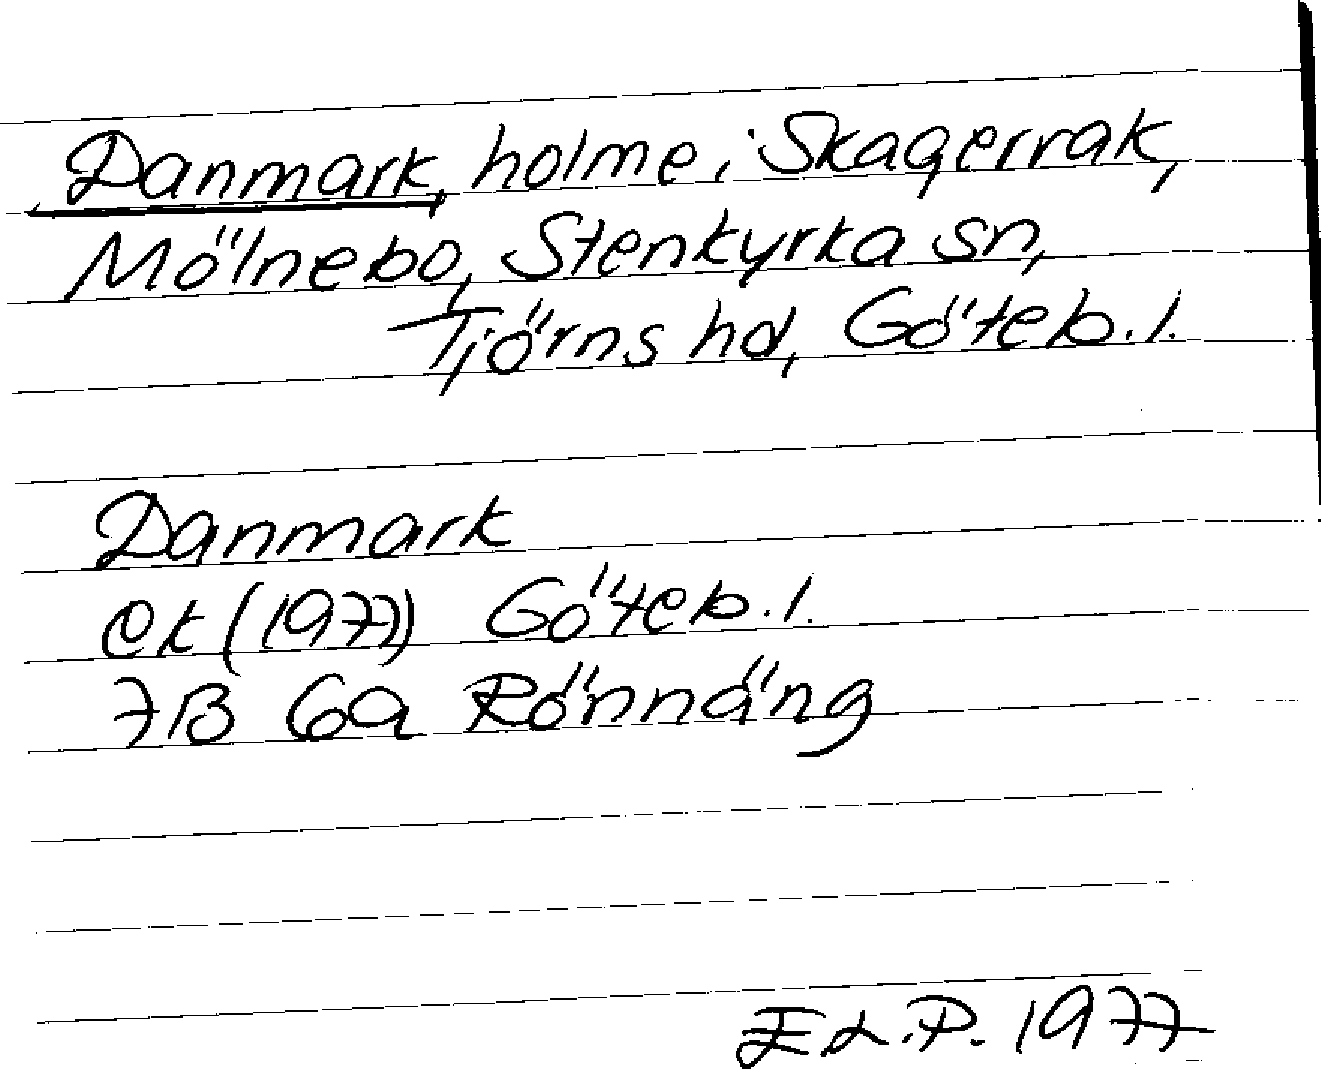 Danmark, holme i Skagerrak,
Mölnebo, Stenkyrka sn,
Tjörns hd, Göteb. l.
Danmark
ek (1977) Göteb. l.
7B 6a Rönnäng
E.L.P. 1977